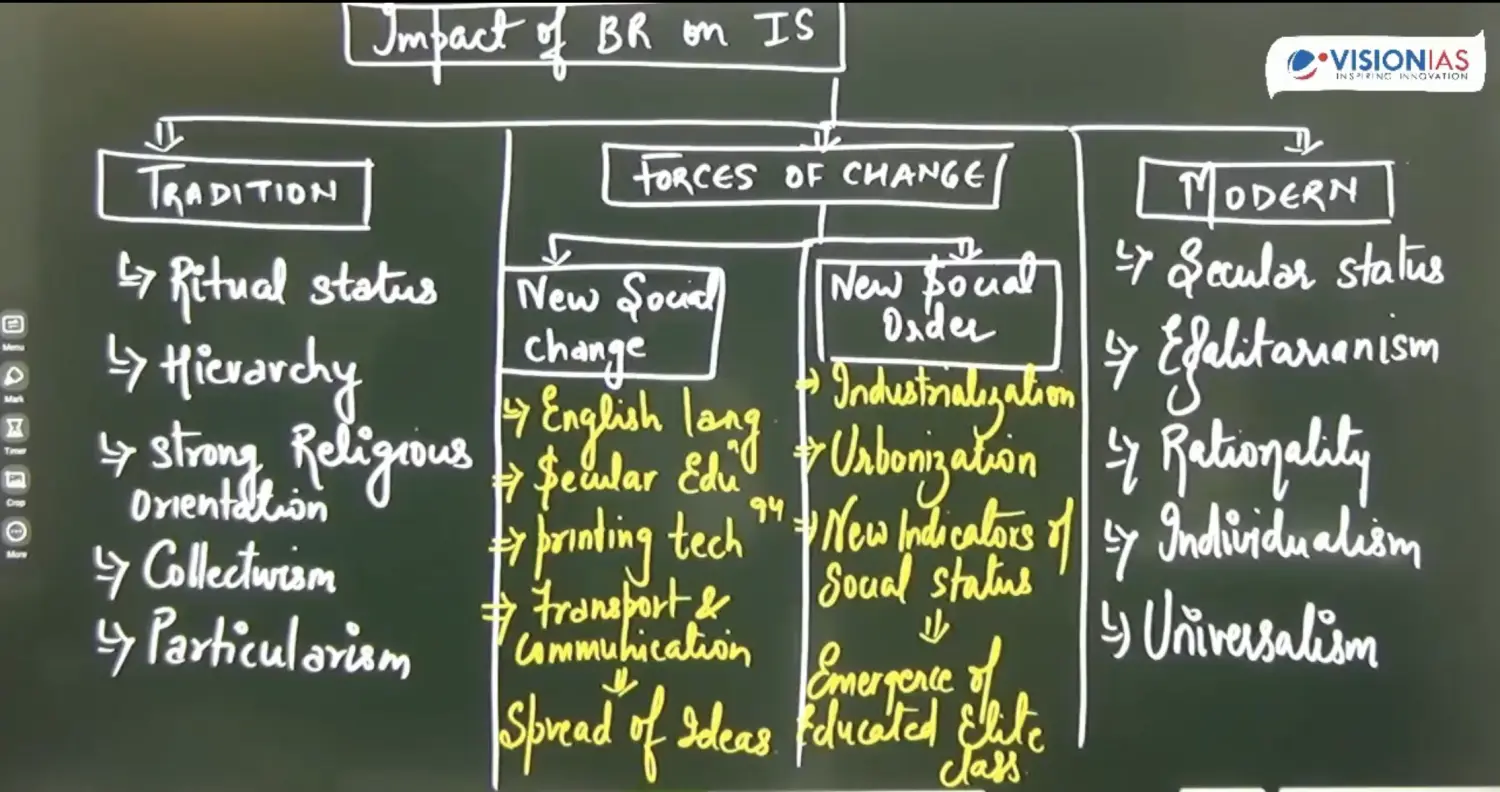 Impact of BR on IS
VISIONIAS
INSPIRING INNOVATION
TRADITION
Ritual status
Hierarchy
Strong Religious
Orientation
Collectivism
Particularism
FORCES OF CHANGE
New Social
Change
English lang
Secular Edun
printing tech
Transport &
Communication
Spread of Ideas
New Social
Order
Industrialization
Urbanization
New Indicators of
Social status
Emergence of
Educated Elite
class
MODERN
Secular status
Egalitarianism
Rationality
Individualism
Universalism
Menu
Mark
Timer
Crop
More